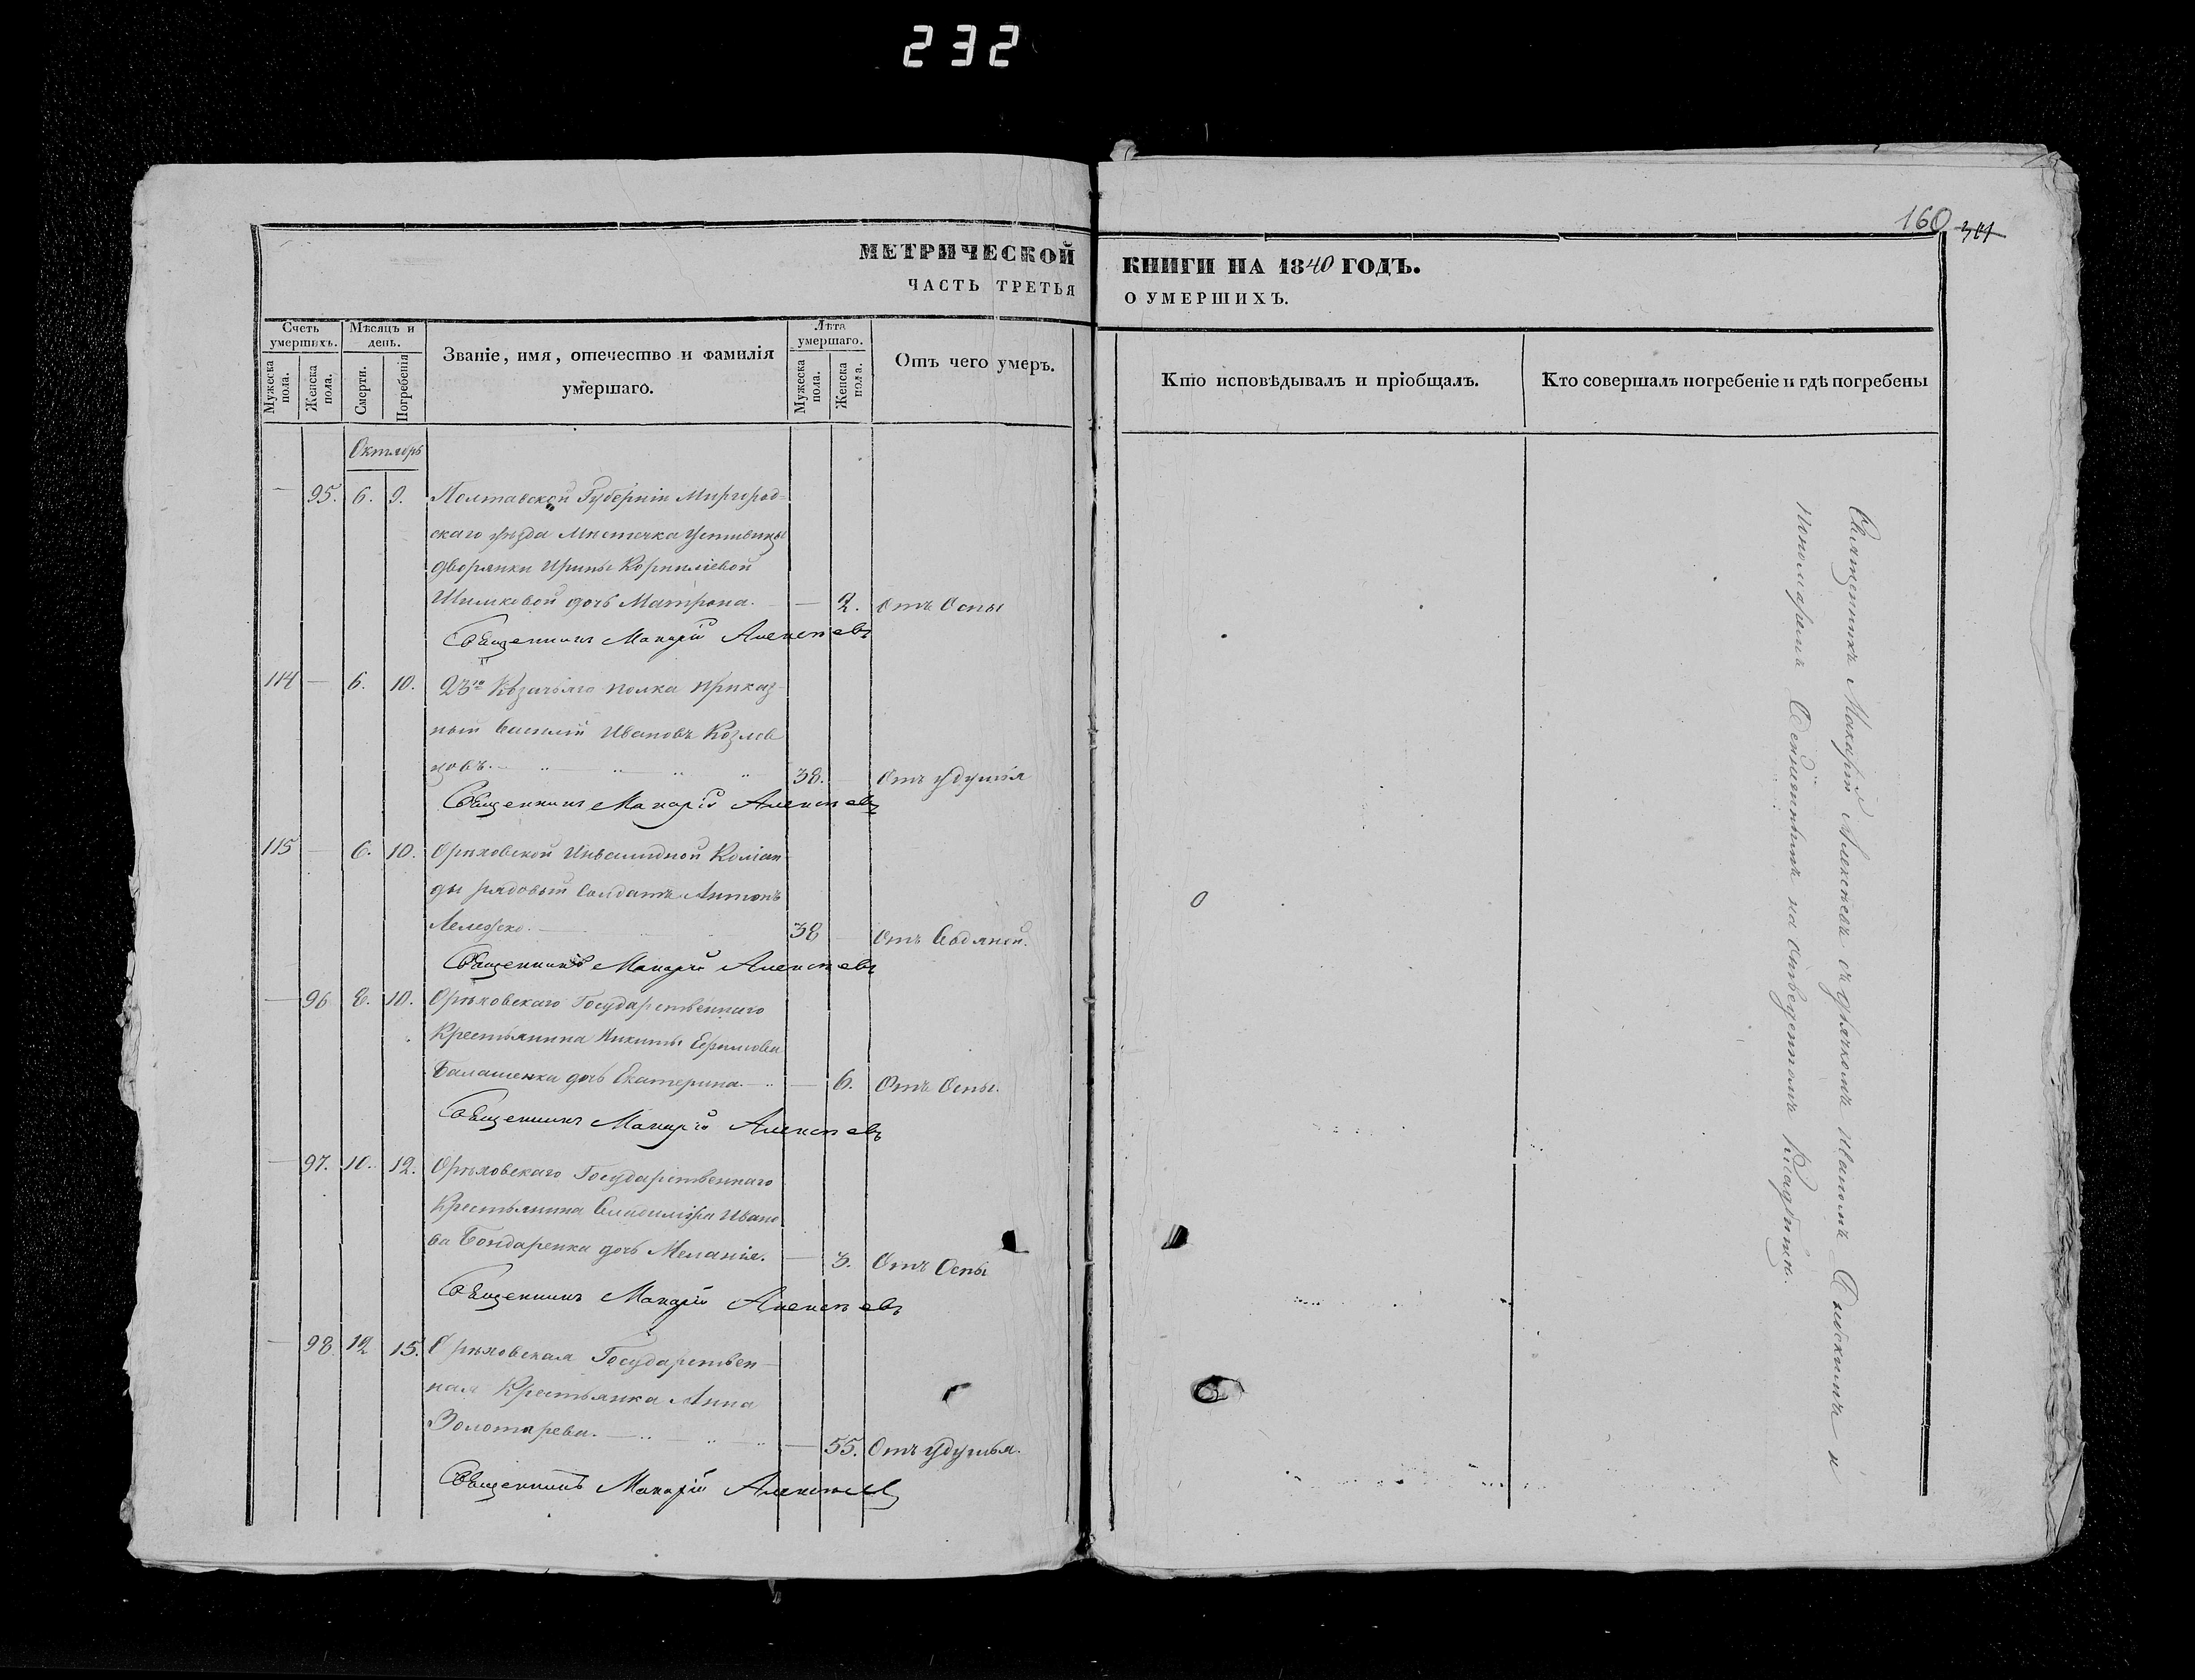 232
160
МЕТРИЧЕСКОЙ КНИГИ НА 1840 ГОДЪ.
ЧАСТЬ ТРЕТЬЯ О УМЕРШИХЪ.
Счетъ умершихъ.
Мужеска пола.
Женска пола.
Мѣсяцъ и день.
Смерти.
Погребенія
Званіе, имя, отечество и фамилія умершаго.
Лѣта умершаго.
Мужеска пола.
Женска пола.
Отъ чего умеръ.
Кто исповѣдывалъ и пріобщалъ.
Кто совершалъ погребеніе и гдѣ погребены
Октябрь
— 95. 6. 9. Полтавской Губерніи Миргород=
скаго уѣзда Мистечка Устивицы
дворянки Ирины Корниліевой
дочь Матрона. — 2. Отъ Оспы
Священникъ Макарій Алексѣевъ
114 — 6. 10. 23го Козачьяго полка приказ
ный Василій Ивановъ Козлов
цовъ. 38. — Отъ удушія
Священникъ Макарій Алексѣевъ
115 — 6. 10. Орѣховской Инвалидной Коман
ды рядовый Солдатъ Антонъ
38 — Отъ Водяной.
Священникъ Макарій Алексѣевъ
— 96 8. 10. Орѣховскаго Государственнаго
Крестьянина Никиты Ефимова
Балашенка дочь Екатерина. — 6. Отъ Оспы.
Священникъ Макарій Алексѣевъ
— 97. 10. 12. Орѣховскаго Государственнаго
Крестьянина Владиміра Ивано
ва Бондаренка дочь Меланія. — 3. Отъ Оспы
Священникъ Макарій Алексѣевъ
— 98 12 15. Орѣховская Государствен—
ная Крестьянка Анна
Золотарева. — 55. Отъ удушья.
Священникъ Макарій Алексѣевъ
Священникъ Макарій Алексѣевъ съ дьячкомъ Иваномъ и
Пономаремъ на отведенномъ Кладбищѣ.